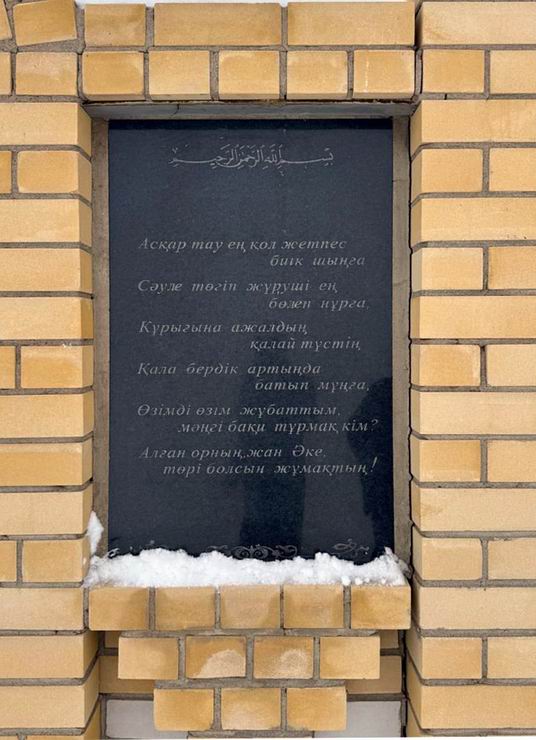 بسم الله الرحمن الرحيم
Асқар тау ең қол жетпес
биік шыңға
Сәуле төгіп жүруші ең
бөлеп нұрға,
Құрығына ажалдың
қалай түстің
Қала бердік артыңда
батып мұңға,
Өзімді өзім жұбаттым,
мәңгі бақи тұрмақ кім?
Алған орның,жан Әке,
төрі болсын жұмақтың!